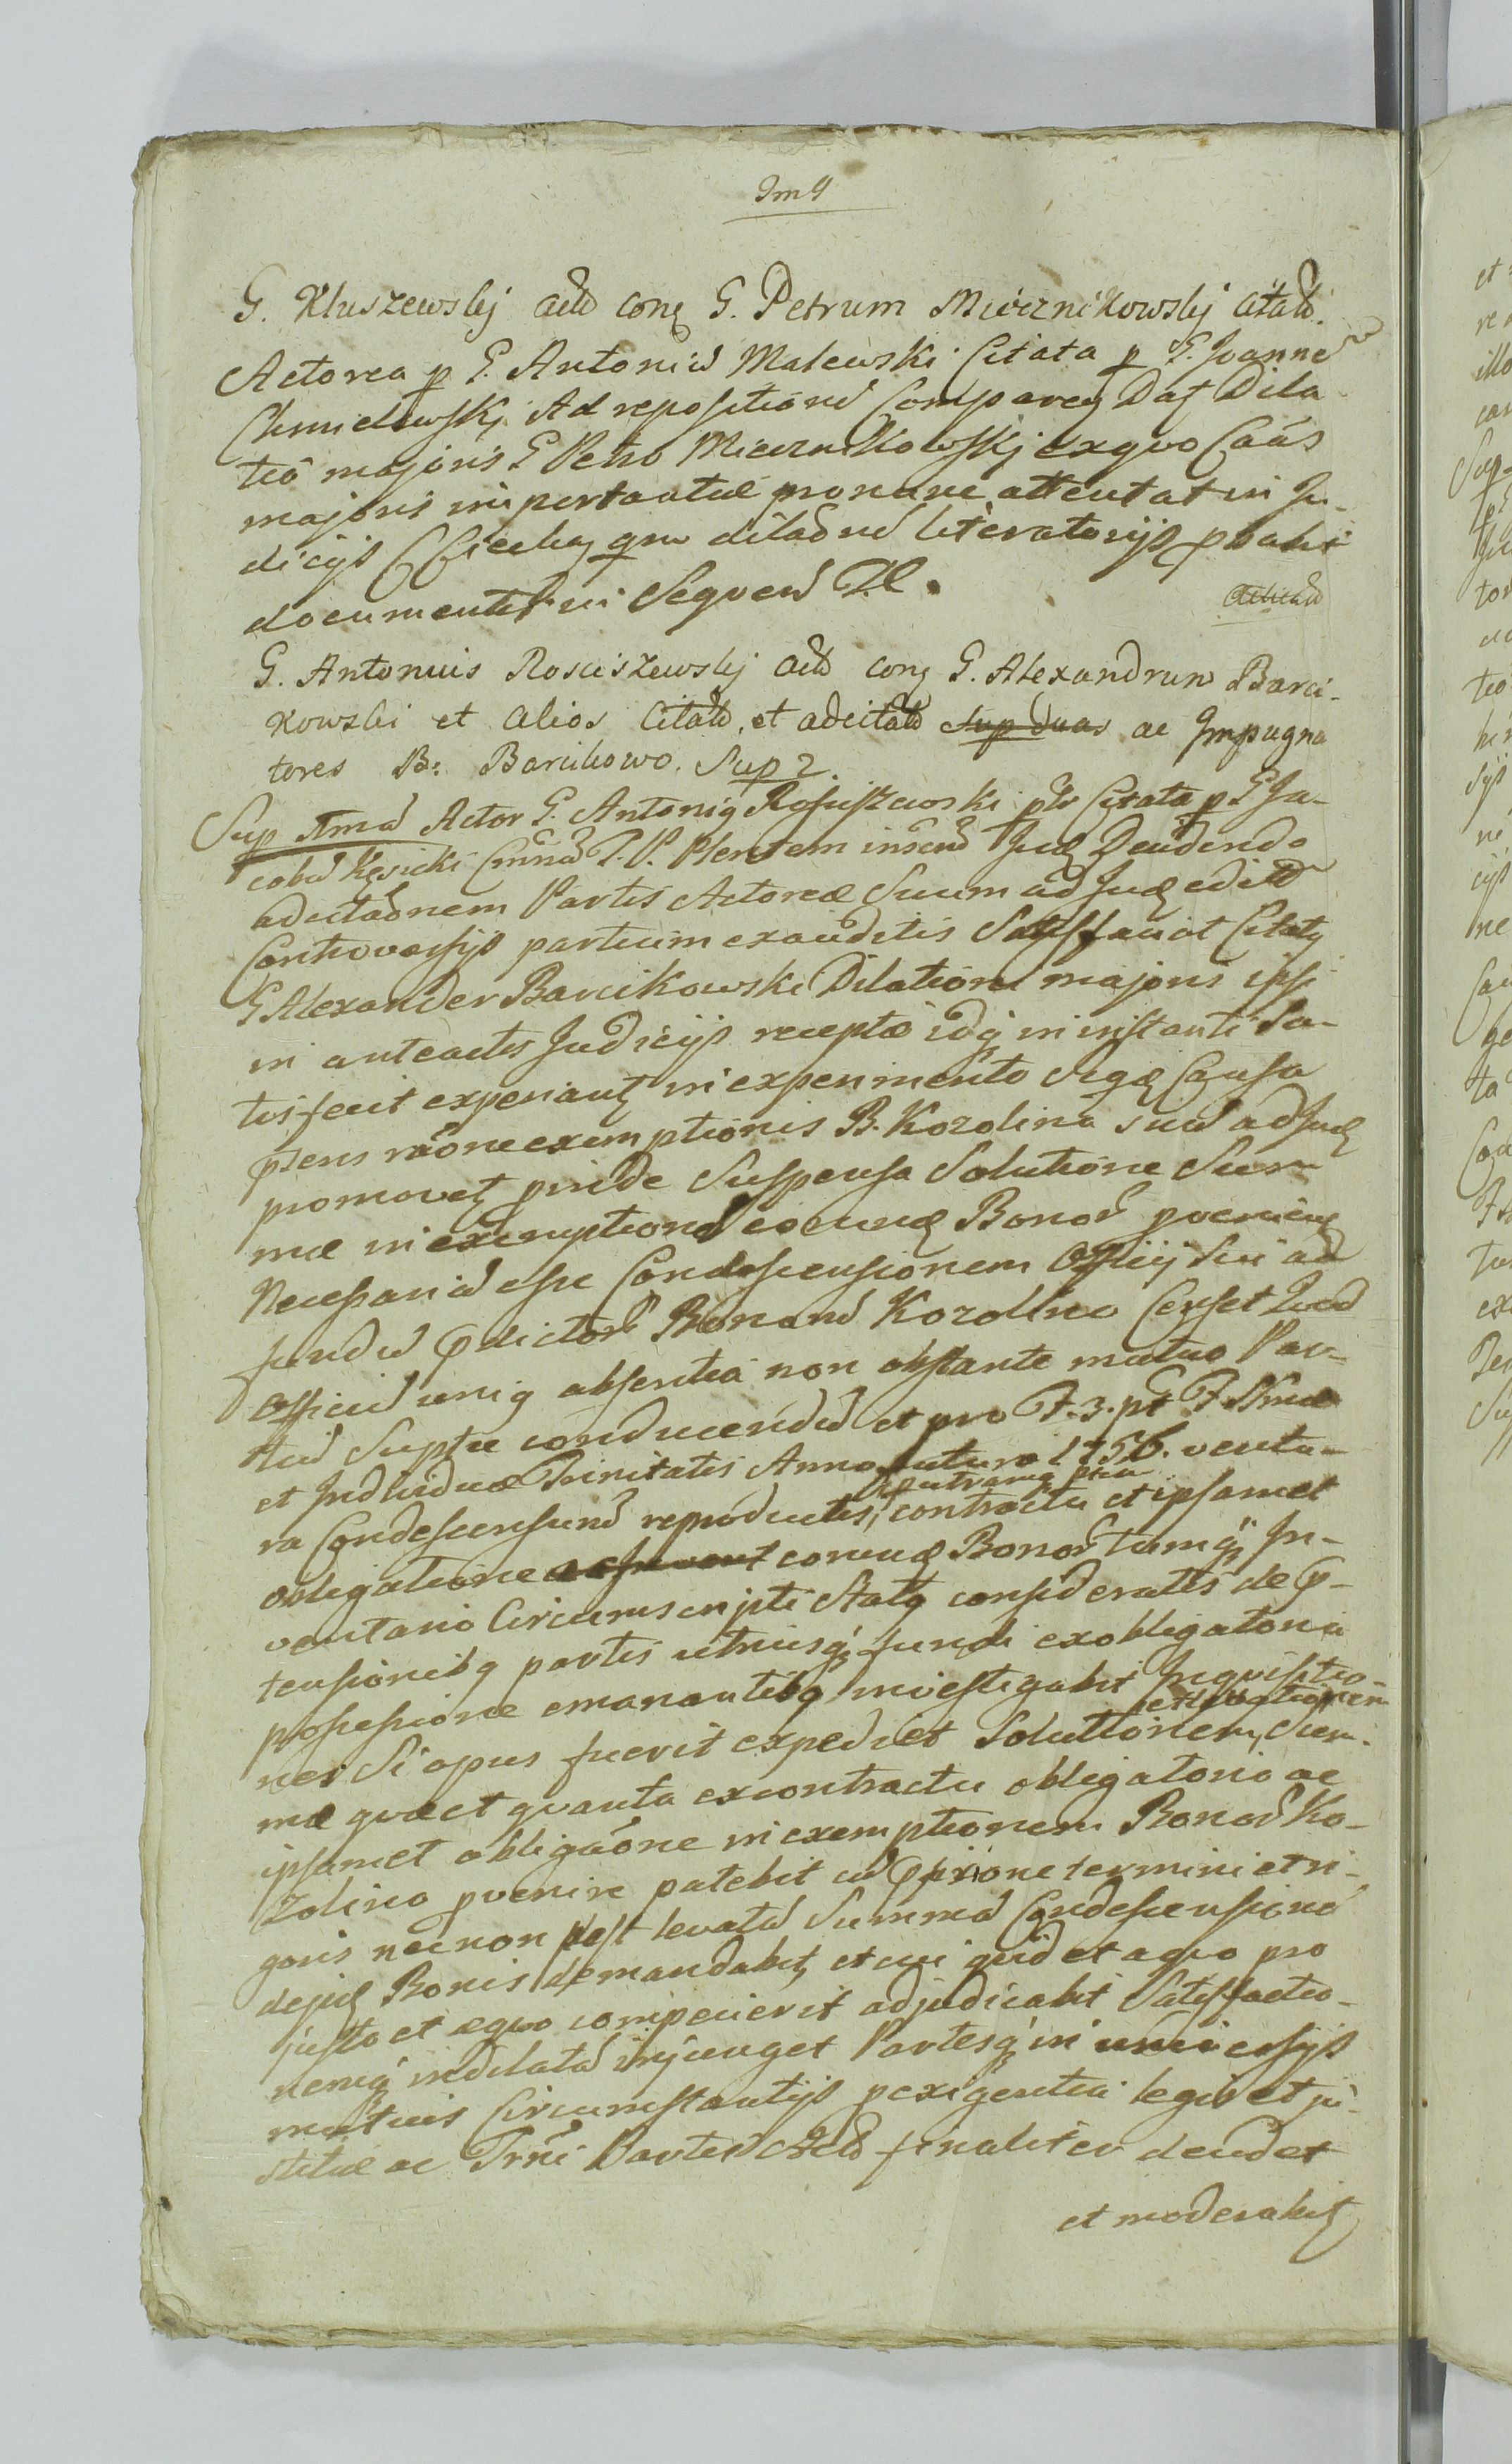 Im 9
G. Kluszewskj actd conq G. Petrum Miecznikowskj citatd.
Actorea p G. Antoniu Malewski Citata p G. Joanne
Chmielewskj Ad repositione Comparen Daq Dila
tio majoris G Petro Miecznikowskj exquo Caus
majoris importantiæ pronunc attentat in Ju-
dicijs
documentis in Sequen Tl.
G. Antonius Rosciszewskj actd conq G. Alexandrum Barci-
kowski et alios Citatd, et adcitatd sup duas ac Impugna
tores B: Barcikowo. Sup 2
Sup Ima Actor G. Antoniq Rosciszewski ptr Citata p G Ja-
cobu Kęsicki T. P. Ptentem
adcitaonem Partis Actoreæ Suum ad Juq edit
Controversijs partium exauditis Satisfaciat Citatq
G Alexander Barcikowski Dilationi majoris ipsi
in anteactis Judicijs receptæ idq in instanti Sa-
tisfecit experiant in experimento Causa
ptens raone exemptionis B. Kozolina suu ad Juq
promovet pinde Suspensa Solutione Sum
mæ in exemptione eorunq Bonor pvenien
Necessariu esse Condescensionem Officij Sui ad
fundu pdictor Bonoru Kozolino Censet Quod
Officiu uniq absentia non obstante mutuo Par-
tiu Sumptu conducendu et pro F. 3. pt F. Smæ
et Individuæ Trinitatis Anno futuro 1756. ventu-
ra Condescensuru reproductis p utramq ptem contractu et ipsamet
obligatione eorunq Bonor tumq In-
ventario Circumscripti Statq consideratis de p-
tensionibq partis utriusq fundi exobligatoria
possessione emanantibq investigabit Inquisitio-
nes Si opus fuerit expediet Solutionem, Sum-
mæ quæ et quanta excontractu obligatorio ac
ipsamet obligaone in exemptionem Bonor Ko-
zolino pvenire patebit cu pfixione termini et ri-
goris necnon post levata Summa Condescensione
dejuq Bonis demandabit, et cui quid et aquo pro
justo et æquo competierit adjudicabit Satisfactio-
nemq indilata injunget Partesq in universijs
mutuis Circumstantijs pexigentia legis et ju-
stitiæ ac Trni Partes Actd finaliter decidet
et moderabit